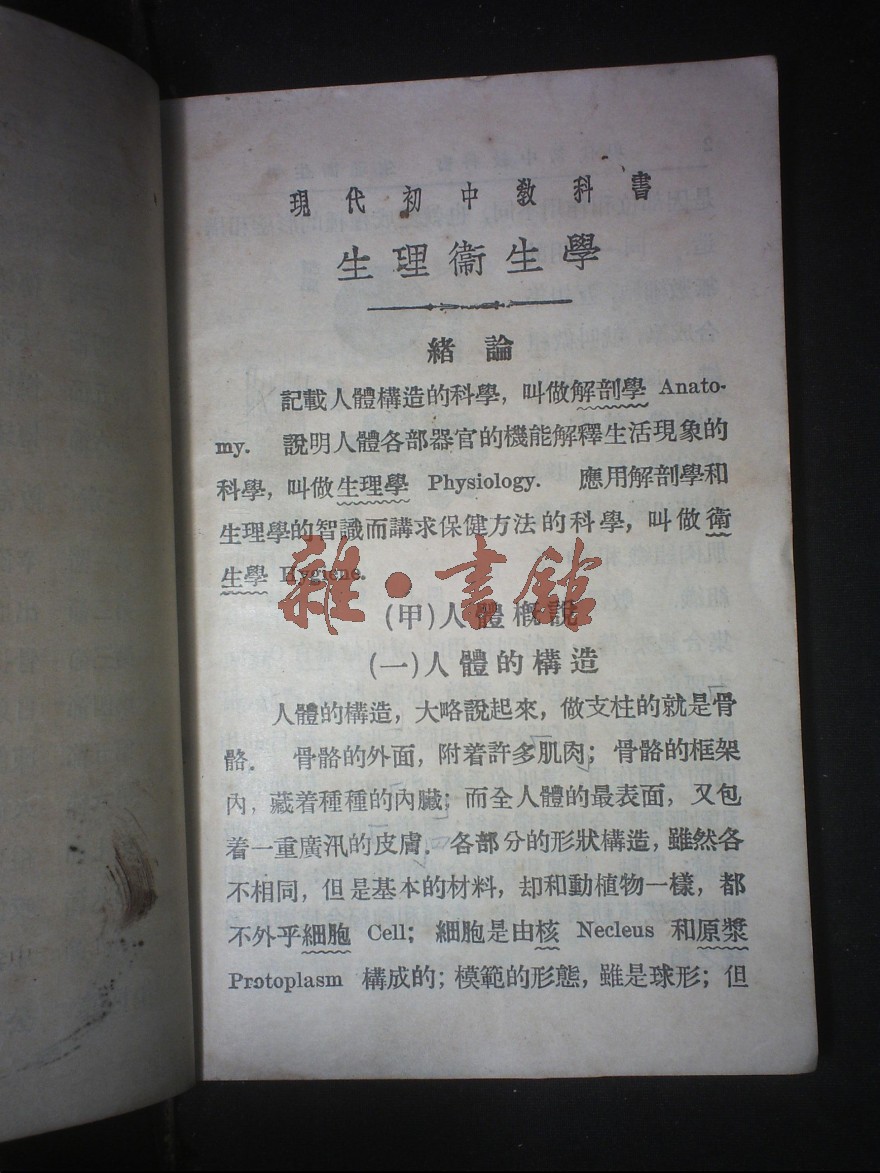 現代初中教科書
生理衞生學
緒論
記載人體構造的科學，叫做解剖學 Anato-
my. 說明人體各部器官的機能解釋生活現象的
科學，叫做生理學 Physiology. 應用解剖學和
生理學的智識而講求保健方法的科學，叫做衛
生學 Hygiene.
雜·書館
(甲)人體概說
(一)人體的構造
人體的構造，大略說起來，做支柱的就是骨
骼． 骨骼的外面，附着許多肌肉；骨骼的框架
內，藏着種種的內臟；而全人體的最表面，又包
着一重廣汎的皮膚．各部分的形狀構造，雖然各
不相同，但是基本的材料，却和動植物一樣，都
不外乎細胞 Cell；細胞是由核 Necleus 和原漿
Protoplasm 構成的；模範的形態，雖是球形；但